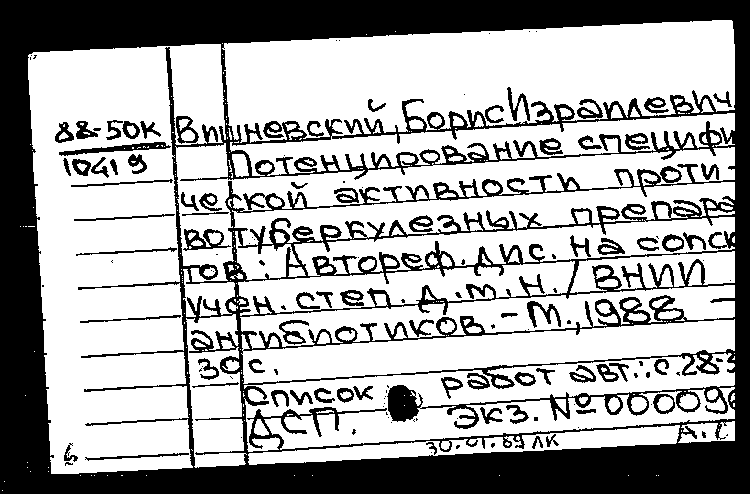 88-50к Вишневский, Борис Израилевич.
10419 Потенцирование специфи
ческой активности проти-
вотуберкулезных препара
тов : Автореф. дис. на соиск
учен. степ. д.м.н. / ВНИИ
антибиотиков. - М., 1988 -
30 с.
Список работ авт.: с. 28-3
ДСП. Экз. № 000090
30.01.89 ЛК А.С
б